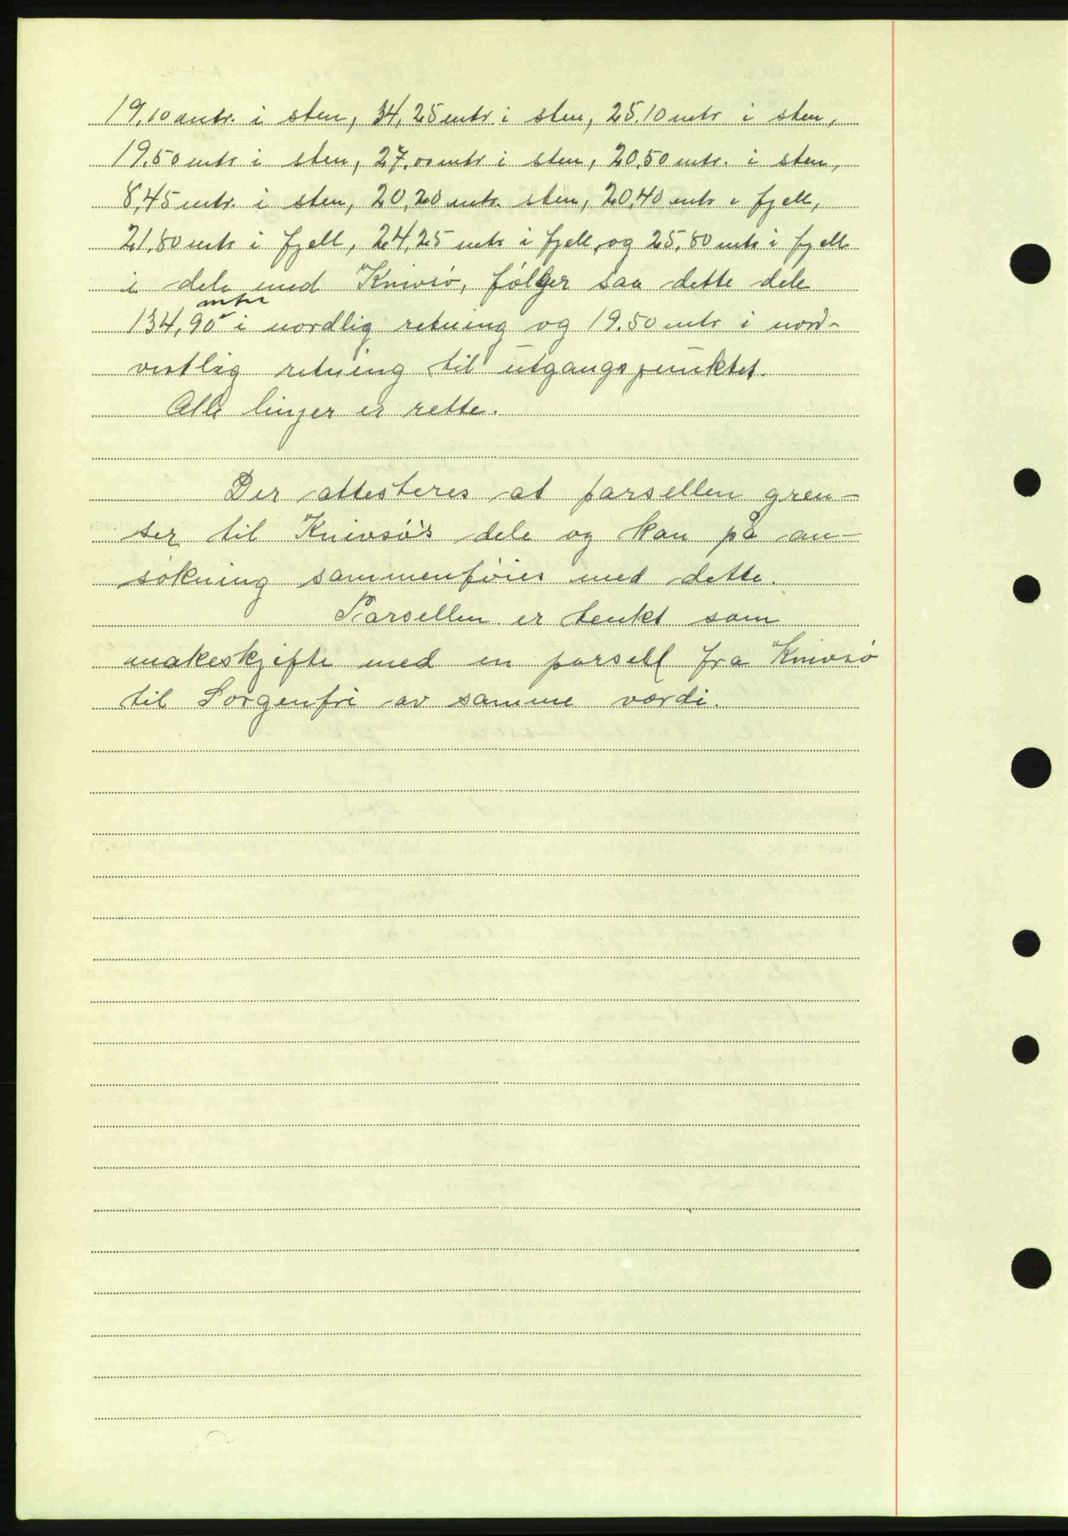 19,10 mtr. i sten, 34,25 mtr i sten, 25.10 mtr i sten,
19.50 mtr i sten, 27,00 mtr i sten, 20,50 mtr. i sten,
8,45 mtr. i sten, 20,20 mtr. sten, 20,40 mtr i fjell,
21,80 mtr i fjell, 24,25 mtr i fjell, og 25,80 mtr i fjell
i dele med Knivsö, følger saa dette dele
134,90 mtr i nordlig retning og 19.50 mtr i nord-
vestlig retning til utgangspunktet.
Alle linjer er rette.
Der attesteres at parsellen gren-
ser til Knivsö's dele og kan på an-
søkning sammenføies med dette.
Parsellen er tenkt som
makeskifte med en parsell fra Knivsö
til Sorgenfri av samme værdi.